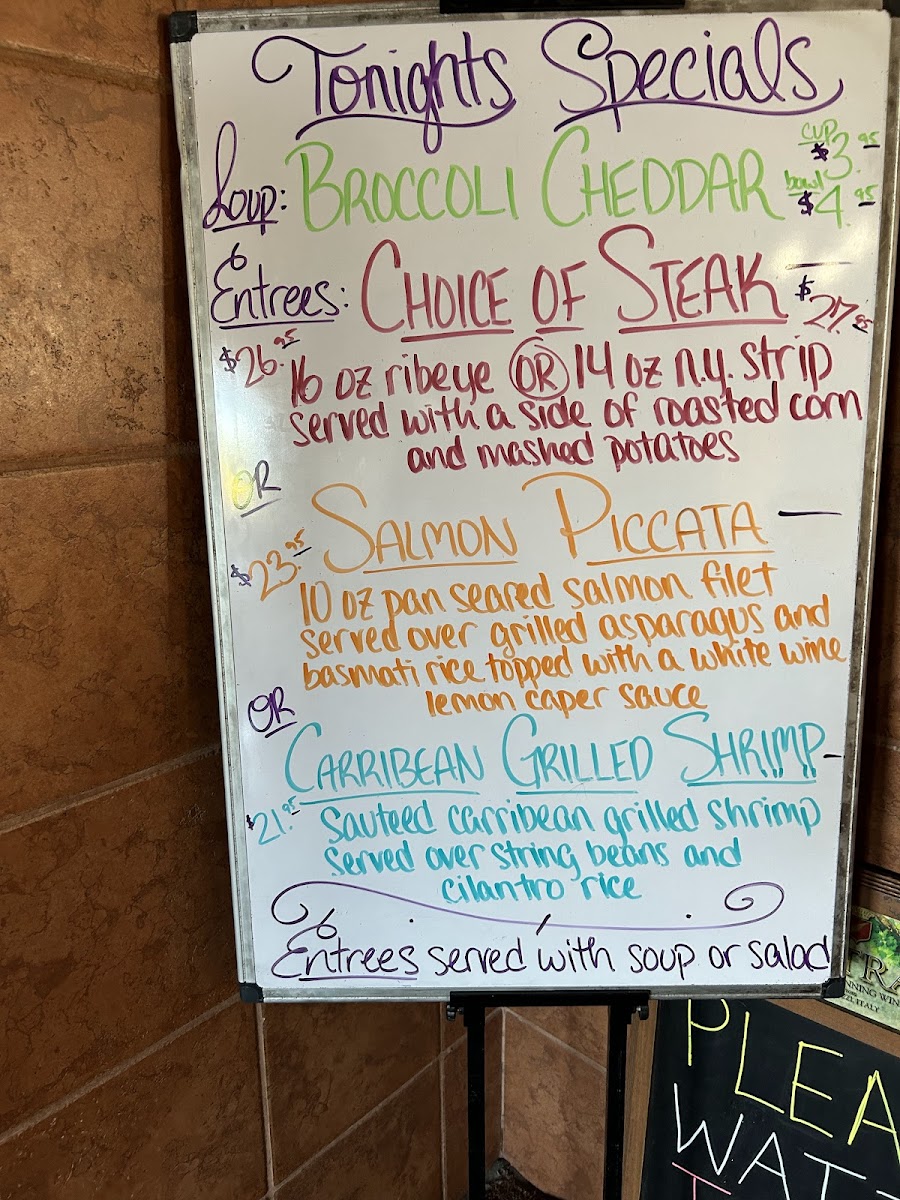 Tonights Specials
Soup: BROCCOLI CHEDDAR
cup $3.95
bowl $4.95
Entrees: CHOICE OF STEAK $27.95
$26.95
16 oz ribeye OR 14 oz n.y. strip
served with a side of roasted corn
and mashed potatoes
OR
SALMON PICCATA
$23.95
10 oz pan seared salmon filet
served over grilled asparagus and
basmati rice topped with a white wine
lemon caper sauce
OR
CARRIBEAN GRILLED SHRIMP
$21.95
sauteed carribean grilled shrimp
served over string beans and
cilantro rice
Entrees served with soup or salad
PLEA
WAT